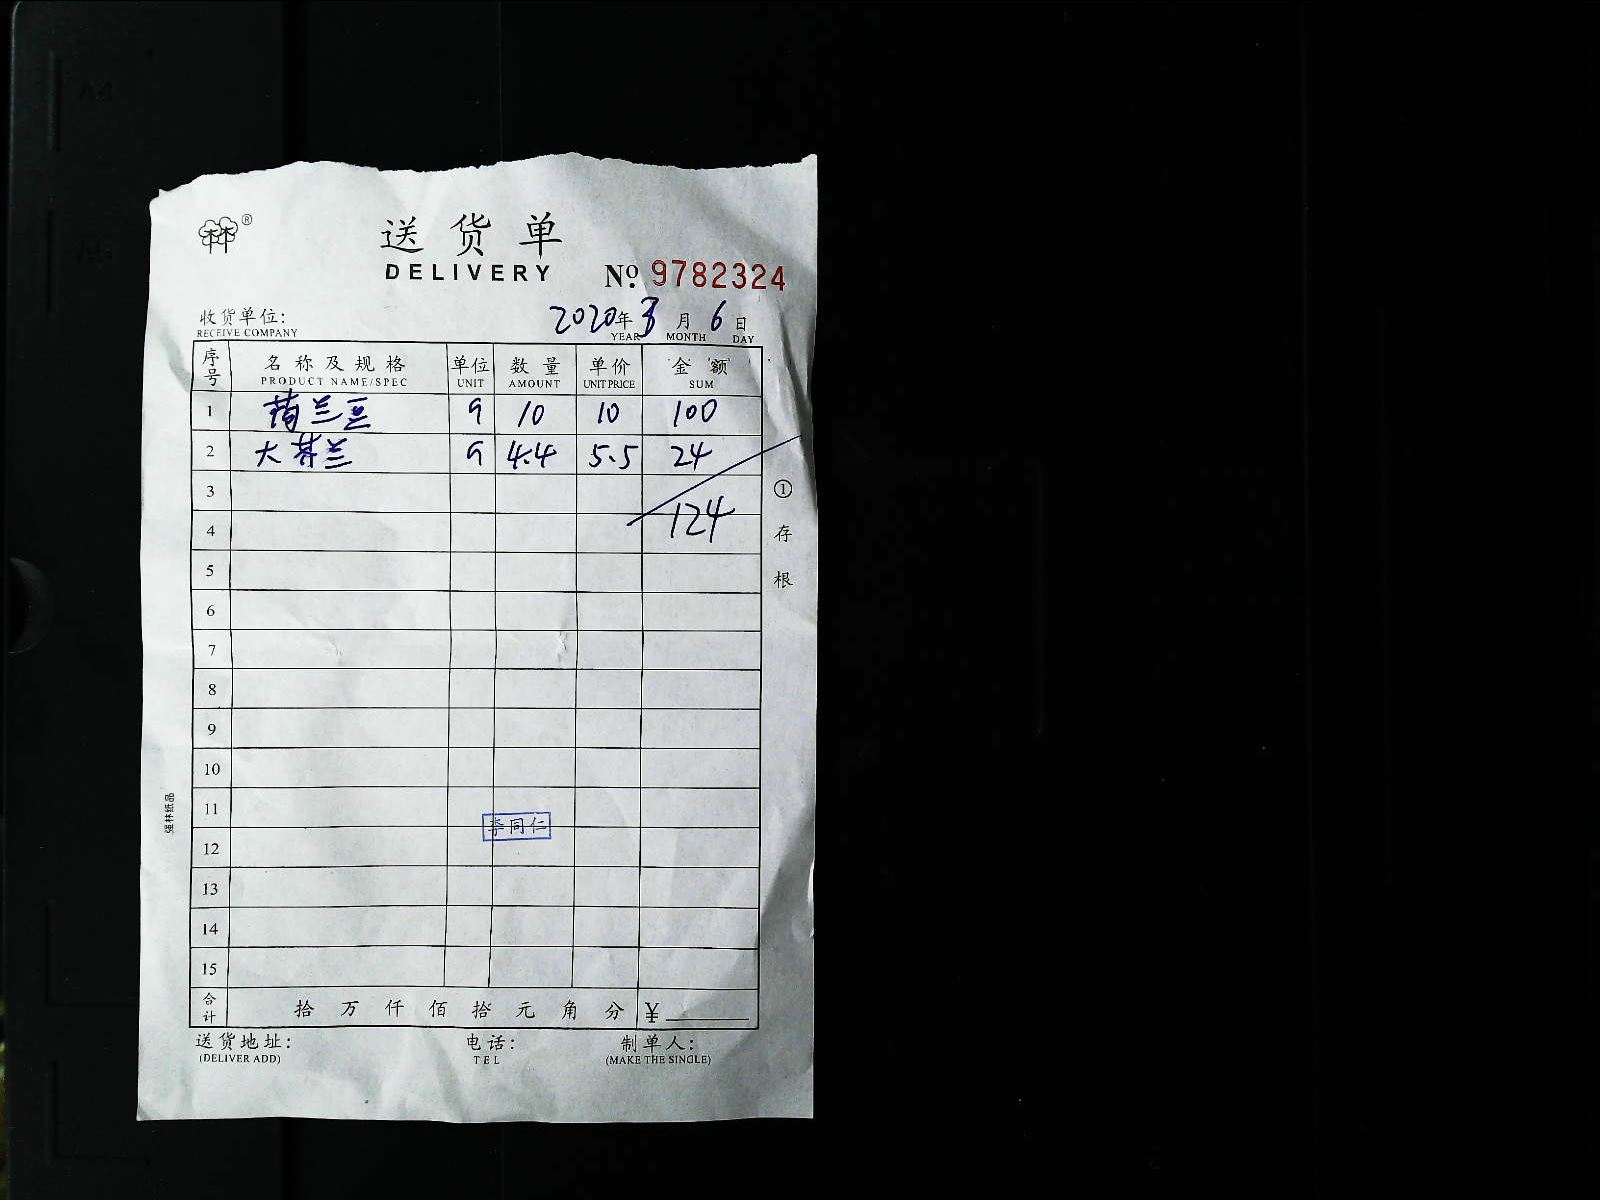 ®
送货单
DELIVERY
No. 9782324
收货单位:
RECEIVE COMPANY
2020年3月6日
YEAR MONTH DAY
序号 名称及规格 单位 数量 单价 金额
PRODUCT NAME/SPEC UNIT AMOUNT UNIT PRICE SUM
1 荷兰豆 10 10 100
2 大芥兰 4.4 5.5 24
3
4 124
5
6
7
8
9
10
11
12
13
14
15
李同仁
①存根
强林纸品
合计 拾 万 仟 佰 拾 元 角 分 ¥
送货地址: 电话: 制单人:
(DELIVER ADD) TEL (MAKE THE SINGLE)